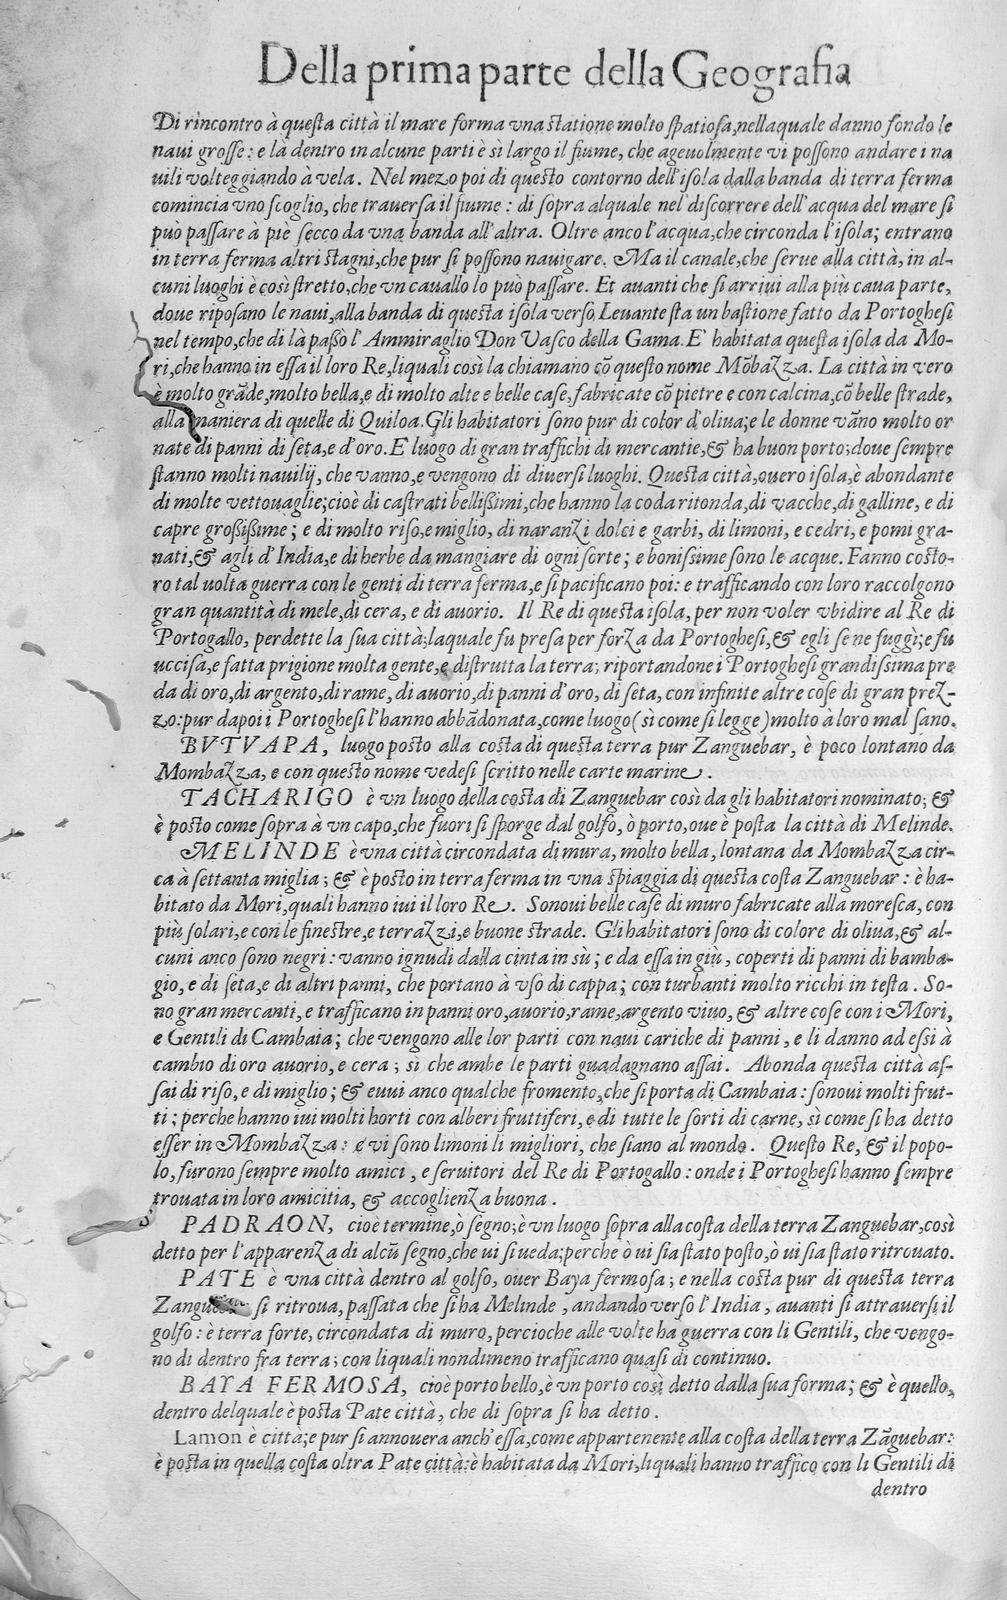 Della prima parte della Geografia
Di rincontro à questa città il mare forma vna statione molto spatiosa, nellaquale danno fondo le
naui grosse: e là dentro in alcune parti è sì largo il fiume, che ageuolmente vi possono andare i na
uili volteggiando à vela. Nel mezo poi di questo contorno dell'isola dalla banda di terra ferma
comincia vno scoglio, che trauersa il fiume: di sopra alquale nel discorrere dell'acqua del mare si
può passare à piè secco da vna banda all'altra. Oltre anco l'acqua, che circonda l'isola; entrano
in terra ferma altri stagni, che pur si possono nauigare. Ma il canale, che serue alla città, in al-
cuni luoghi è così stretto, che vn cauallo lo può passare. Et auanti che si arriui alla più caua parte,
doue riposano le naui, alla banda di questa isola verso Leuante sta un bastione fatto da Portoghesi
nel tempo, che di là passò l'Ammiraglio Don Vasco della Gama. E' habitata questa isola da Mo-
ri, che hanno in essa il loro Re, liquali così la chiamano cō questo nome Mōbazza. La città in vero
è molto grāde, molto bella, e di molto alte e belle case, fabricate cō pietre e con calcina, cō belle strade,
alla maniera di quelle di Quiloa. Gli habitatori sono pur di color d'oliua; e le donne vāno molto or
nate di panni di seta, e d'oro. E luogo di gran traffichi di mercantie, & ha buon porto; doue sempre
stanno molti nauilij, che vanno, e vengono di diuersi luoghi. Questa città, ouero isola, è abondante
di molte vettouaglie; cioè di castrati bellissimi, che hanno la coda ritonda, di vacche, di galline, e di
capre grossissime; e di molto riso, e miglio, di naranzi dolci e garbi, di limoni, e cedri, e pomi gra-
nati, & agli d'India, e di herbe da mangiare di ogni sorte; e bonissime sono le acque. Fanno costo-
ro tal uolta guerra con le genti di terra ferma, e si pacificano poi: e trafficando con loro raccolgono
gran quantità di mele, di cera, e di auorio. Il Re di questa isola, per non voler vbidire al Re di
Portogallo, perdette la sua città; laquale fu presa per forza da Portoghesi, & egli se ne fuggì; e fu
uccisa, e fatta prigione molta gente, e distrutta la terra; riportandone i Portoghesi grandissima pre
da di oro, di argento, di rame, di auorio, di panni d'oro, di seta, con infinite altre cose di gran prez-
zo: pur dapoi i Portoghesi l'hanno abbādonata, come luogo (sì come si legge) molto à loro mal sano.
BVTVAPA, luogo posto alla costa di questa terra pur Zanguebar, è poco lontano da
Mombazza, e con questo nome vedesi scritto nelle carte marine.
TACHARIGO è vn luogo della costa di Zanguebar così da gli habitatori nominato; &
è posto come sopra à vn capo, che fuori si sporge dal golfo, ò porto, oue è posta la città di Melinde.
MELINDE è vna città circondata di mura, molto bella, lontana da Mombazza cir-
ca à settanta miglia; & è posto in terra ferma in vna spiaggia di questa costa Zanguebar: è ha-
bitato da Mori, quali hanno iui il loro Re. Sonoui belle case di muro fabricate alla moresca, con
più solari, e con le finestre, e terrazzi, e buone strade. Gli habitatori sono di colore di oliua, & al-
cuni anco sono negri: vanno ignudi dalla cinta in sù; e da essa in giù, coperti di panni di bamba-
gio, e di seta, e di altri panni, che portano à vso di cappa; con turbanti molto ricchi in testa. So-
no gran mercanti, e trafficano in panni oro, auorio, rame, argento viuo, & altre cose con i Mori,
e Gentili di Cambaia; che vengono alle lor parti con naui cariche di panni, e li danno ad essi à
cambio di oro auorio, e cera; sì che ambe le parti guadagnano assai. Abonda questa città as-
sai di riso, e di miglio; & euui anco qualche fromento, che si porta di Cambaia: sonoui molti frut-
ti; perche hanno iui molti horti con alberi fruttiferi, e di tutte le sorti di carne, sì come si ha detto
esser in Mombazza: e vi sono limoni li migliori, che siano al mondo. Questo Re, & il popo-
lo, furono sempre molto amici, e seruitori del Re di Portogallo: onde i Portoghesi hanno sempre
trouata in loro amicitia, & accoglienza buona.
PADRAON, cioè termine, ò segno; è vn luogo sopra alla costa della terra Zanguebar, così
detto per l'apparenza di alcū segno, che ui si ueda; perche ò ui sia stato posto, ò ui sia stato ritrouato.
PATE è vna città dentro al golfo, ouer Baya fermosa; e nella costa pur di questa terra
si ritroua, passata che si ha Melinde, andando verso l'India, auanti si attrauersi il
golfo: è terra forte, circondata di muro, percioche alle volte ha guerra con li Gentili, che vengo-
no di dentro fra terra; con liquali nondimeno trafficano quasi di continuo.
BAYA FERMOSA, cioè porto bello, è vn porto così detto dalla sua forma; & è quello,
dentro delquale è posta Pate città, che di sopra si ha detto.
Lamon è città; e pur si annouera anch'essa, come appartenente alla costa della terra Zāguebar:
è posta in quella costa oltra Pate città: è habitata da Mori, li quali hanno traffico con li Gentili di
dentro